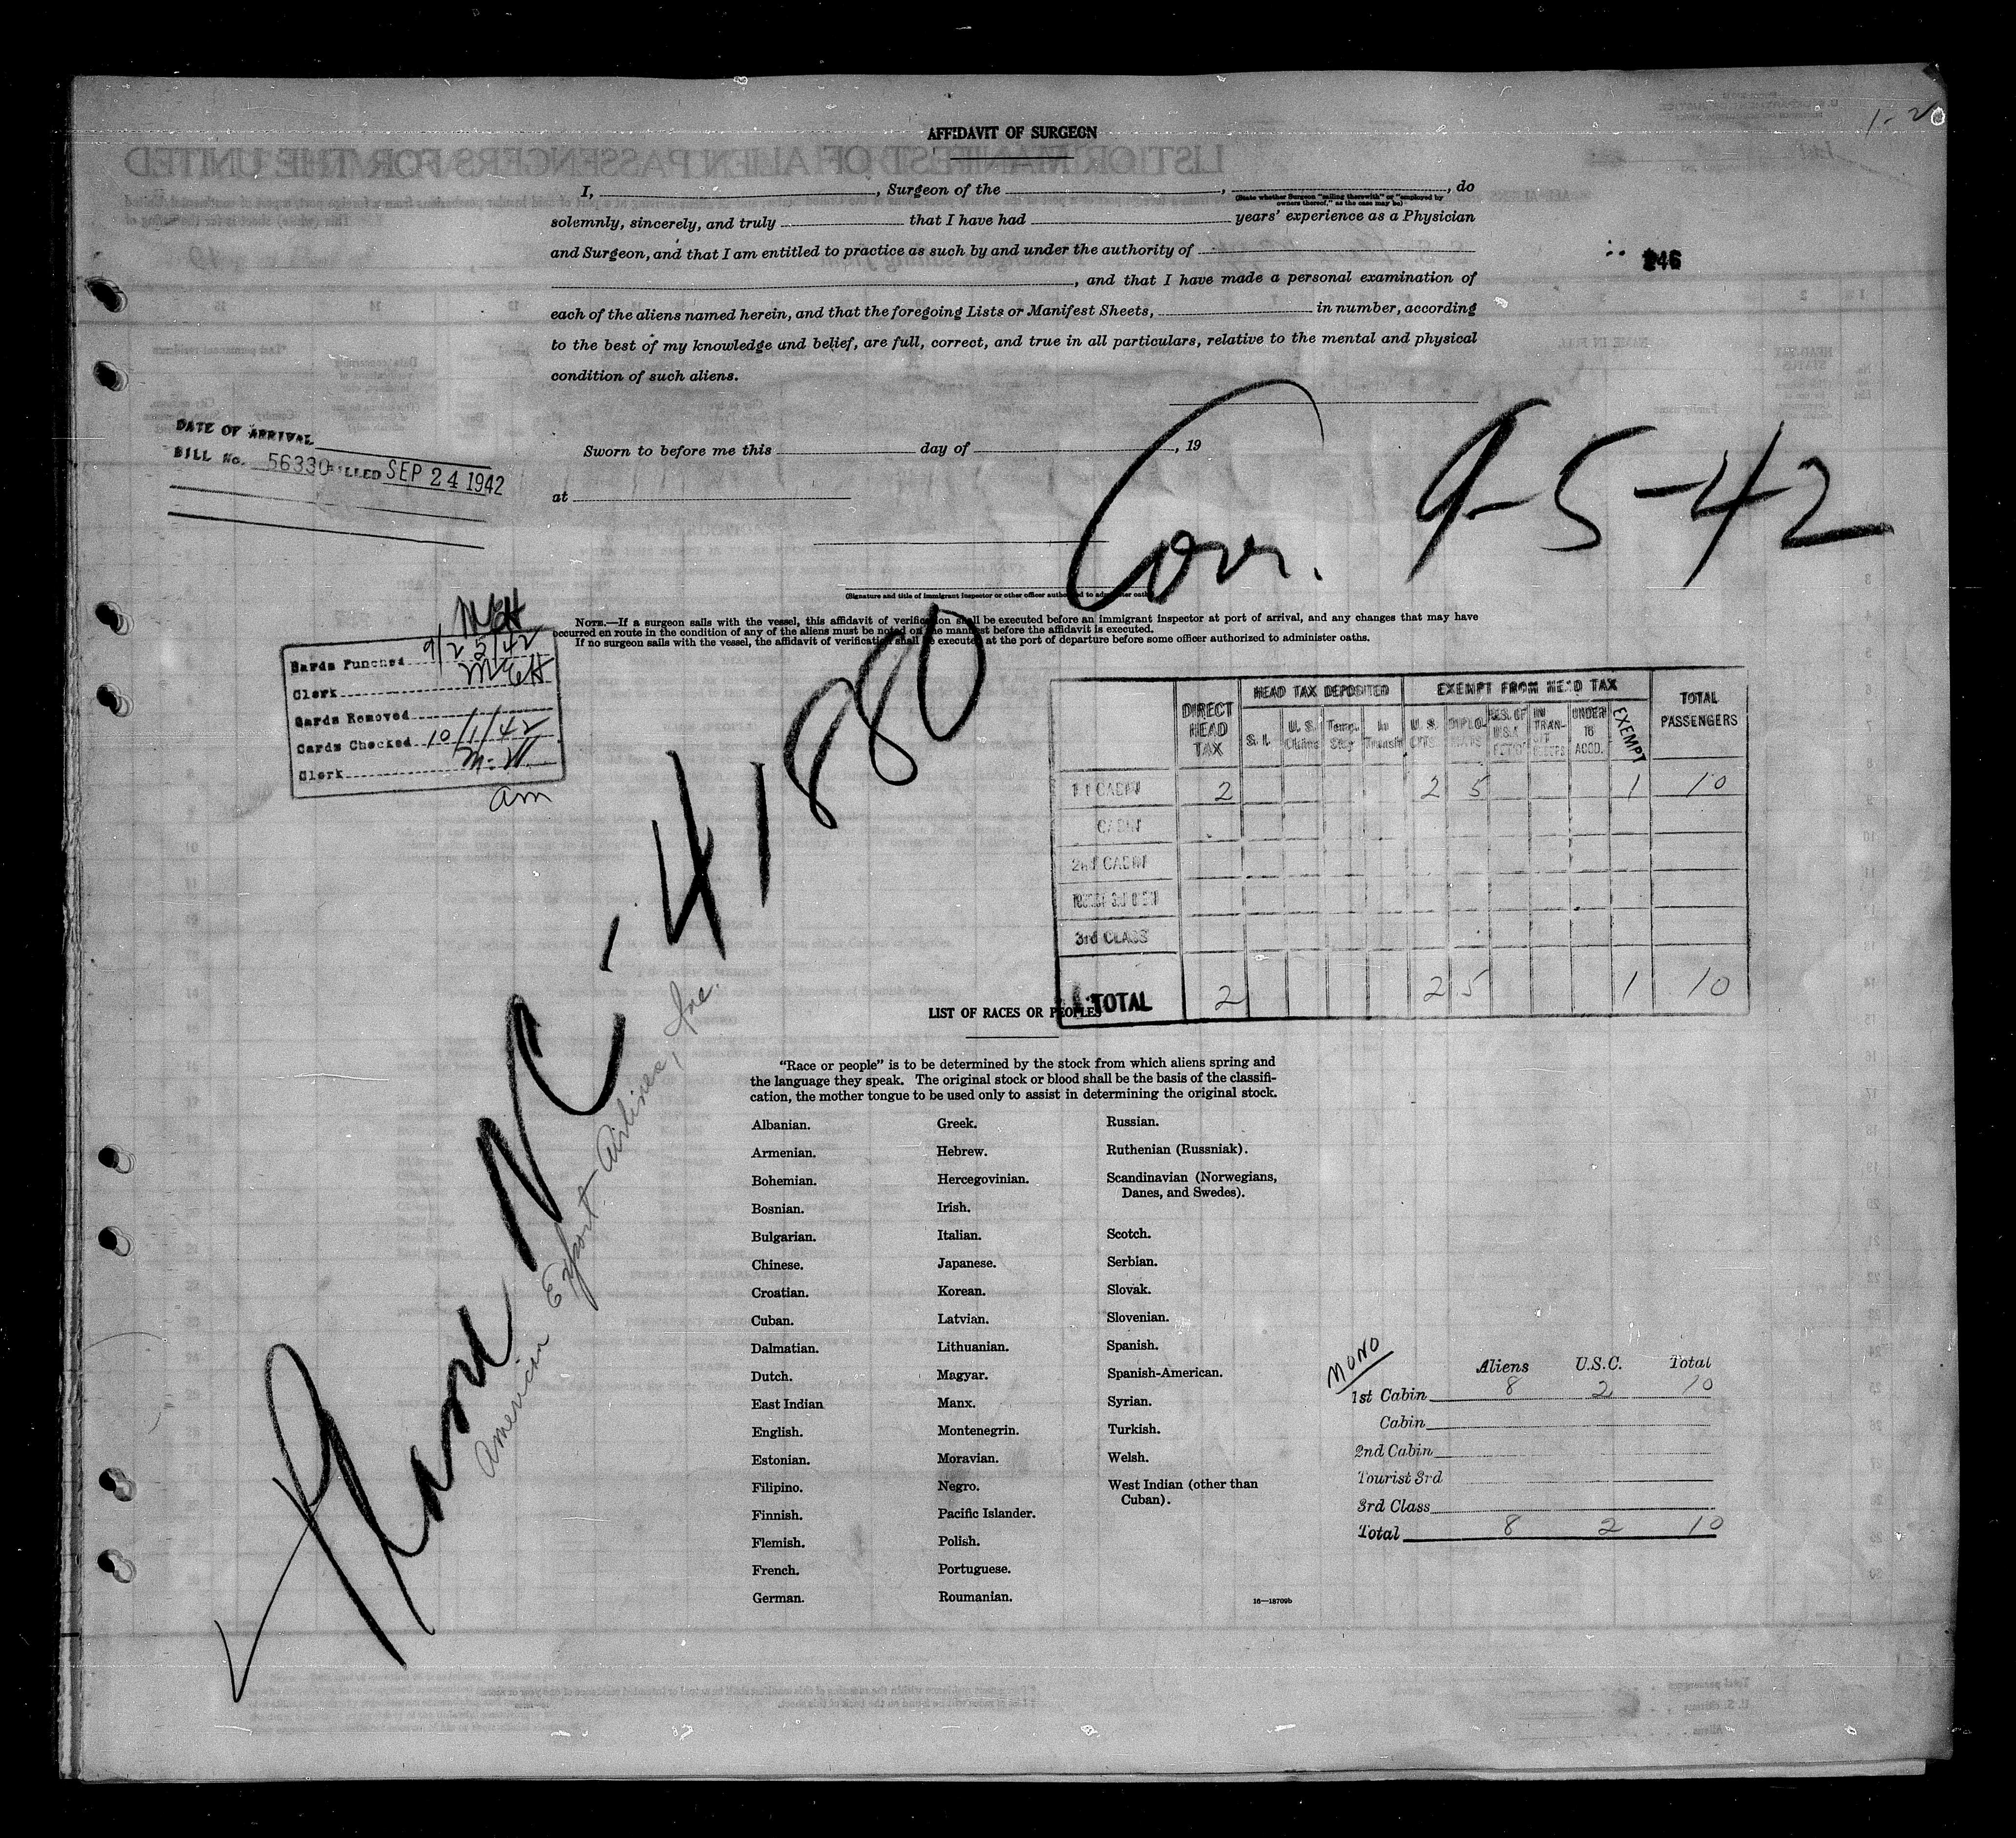 1-20
AFFIDAVIT OF SURGEON
I, , Surgeon of the , , do
(State whether Surgeon "sailing therewith" or "employed by
owners thereof," as the case may be)
solemnly, sincerely, and truly that I have had years' experience as a Physician
and Surgeon, and that I am entitled to practice as such by and under the authority of
, and that I have made a personal examination of
each of the aliens named herein, and that the foregoing Lists or Manifest Sheets, in number, according
to the best of my knowledge and belief, are full, correct, and true in all particulars, relative to the mental and physical
condition of such aliens.
246
DATE OF ARRIVAL
BILL No. 56330 BILLED SEP 24 1942
Sworn to before me this day of , 19
at
9-5-42
(Signature and title of immigrant inspector or other officer authorized to administer oath)
NOTE.—If a surgeon sails with the vessel, this affidavit of verification shall be executed before an immigrant inspector at port of arrival, and any changes that may have
occurred en route in the condition of any of the aliens must be noted on the manifest before the affidavit is executed.
If no surgeon sails with the vessel, the affidavit of verification shall be executed at the port of departure before some officer authorized to administer oaths.
Cards Punched 9/25/42
Clerk
Cards Removed
Cards Checked 10/1/42
Clerk
am
DIRECT HEAD TAX HEAD TAX DEPOSITED EXEMPT FROM HEAD TAX TOTAL PASSENGERS
S. I. U. S. Claims Temp. Stay In Transit U. S. CITS. DIPLOMATS IN TRANSIT UNDER 16 ACCD. EXEMPT
1st CABIN 2 2 5 1 10
CABIN
2nd CABIN
3rd CLASS
TOTAL 2 2 5 1 10
Plane NC-41880
American Export Airlines, Inc.
LIST OF RACES OR PEOPLES
"Race or people" is to be determined by the stock from which aliens spring and
the language they speak. The original stock or blood shall be the basis of the classifi-
cation, the mother tongue to be used only to assist in determining the original stock.
Albanian. Greek. Russian.
Armenian. Hebrew. Ruthenian (Russniak).
Bohemian. Hercegovinian. Scandinavian (Norwegians,
Danes, and Swedes).
Bosnian. Irish.
Bulgarian. Italian. Scotch.
Chinese. Japanese. Serbian.
Croatian. Korean. Slovak.
Cuban. Latvian. Slovenian.
Dalmatian. Lithuanian. Spanish.
Dutch. Magyar. Spanish-American.
East Indian Manx. Syrian.
English. Montenegrin. Turkish.
Estonian. Moravian. Welsh.
Filipino. Negro. West Indian (other than
Cuban).
Finnish. Pacific Islander.
Flemish. Polish.
French. Portuguese.
German. Roumanian.
16—18709b
MONO
Aliens U.S.C. Total
1st Cabin 8 2 10
Cabin
2nd Cabin
Tourist 3rd
3rd Class
Total 8 2 10